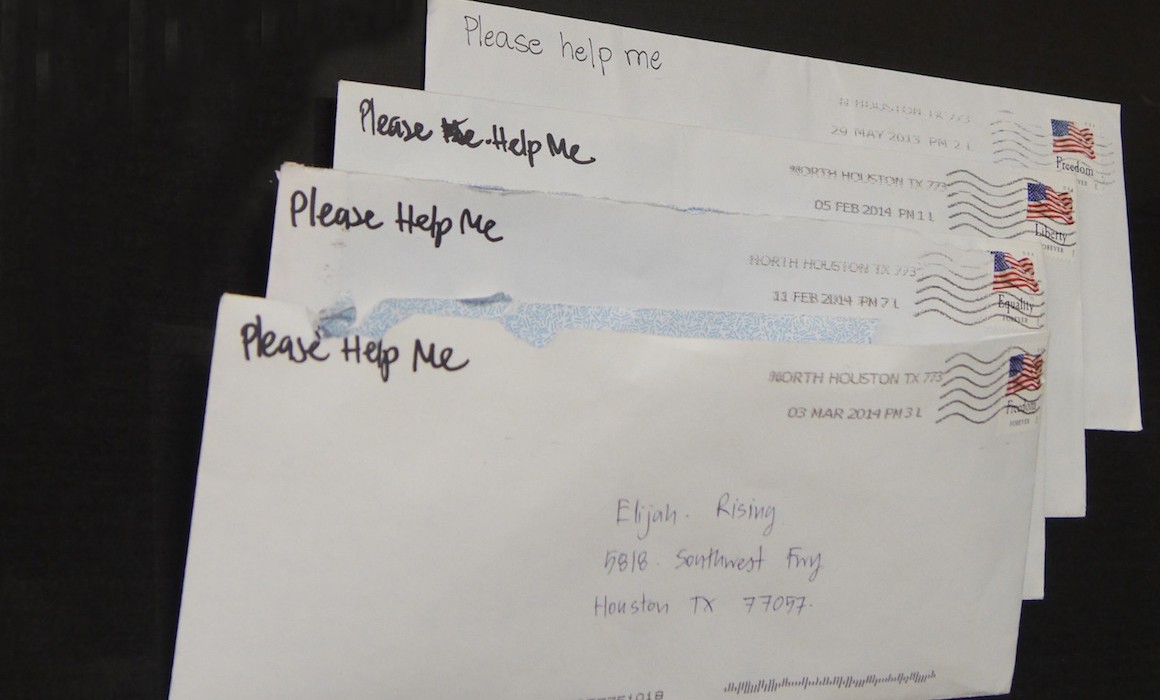 Please help me
N HOUSTON TX 773
29 MAY 2013 PM 2 L
Freedom
Please Help Me
NORTH HOUSTON TX 773
05 FEB 2014 PM 1 L
Liberty
FOREVER
Please Help Me
NORTH HOUSTON TX 773
11 FEB 2014 PM 7 L
Equality
FOREVER
Please Help Me
NORTH HOUSTON TX 773
03 MAR 2014 PM 3 L
Freedom
FOREVER
Elijah. Rising
5818. Southwest Fwy
Houston TX 77057.